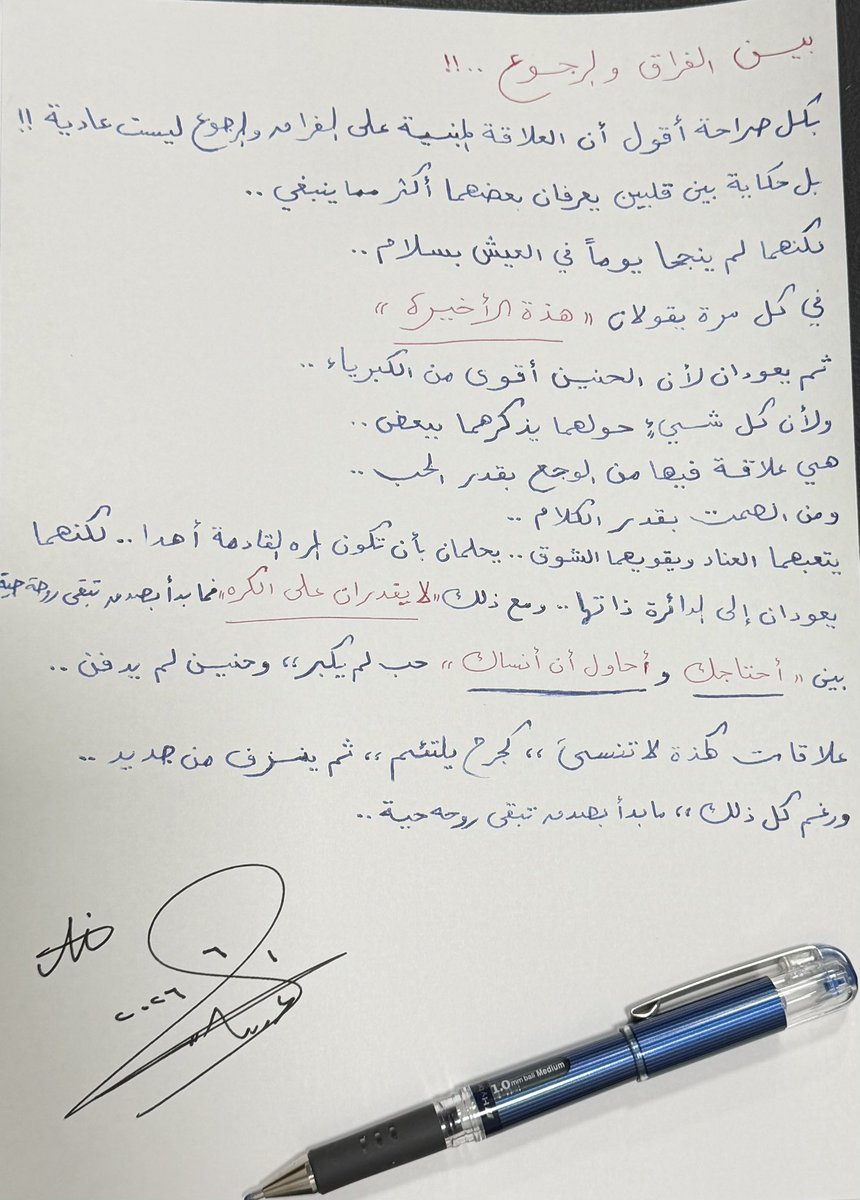 بين الفراق والرجوع ..!!
بكل صراحة أقول أن العلاقة المبنية على الفراق والرجوع ليست عادية !!
بل حكاية بين قلبين يعرفان بعضهما أكثر مما ينبغي ..
لكنهما لم ينجحا يوماً في العيش بسلام ..
في كل مرة يقولان « هذة الأخيرة »
ثم يعودان لأن الحنين أقوى من الكبرياء ..
ولأن كل شيءٍ حولهما يذكرهما ببعض ..
هي علاقة فيها من الوجع بقدر الحب ..
ومن الصمت بقدر الكلام ..
يتعبهما العناد ويقويهما الشوق .. يحلمان بأن تكون المره القادمة أهدا .. لكنهما
يعودان إلى الدائرة ذاتها .. ومع ذلك «لا يقدران على الكره» فما بدأ بصدق تبقى روحة حية
بين « أحتاجك و أحاول أن أنساك » حب لم يكبر ،، وحنين لم يدفن ..
علاقات كهذة لا تنسىَ ،، كجرح يلتئم ،، ثم ينزف من جديد ..
ورغم كل ذلك ،، ما بدأ بصدق تبقى روحه حية ..
٢٠٢٦
1.0 mm ball Medium